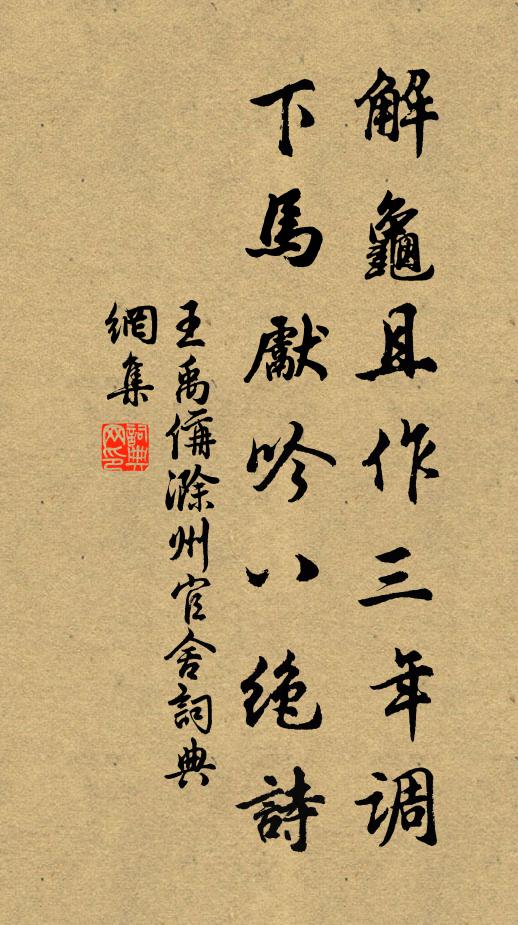 解龜且作三年调
下馬獻吟八絶詩
王禹偁滁州官舍詞典
網集
詞典
网印